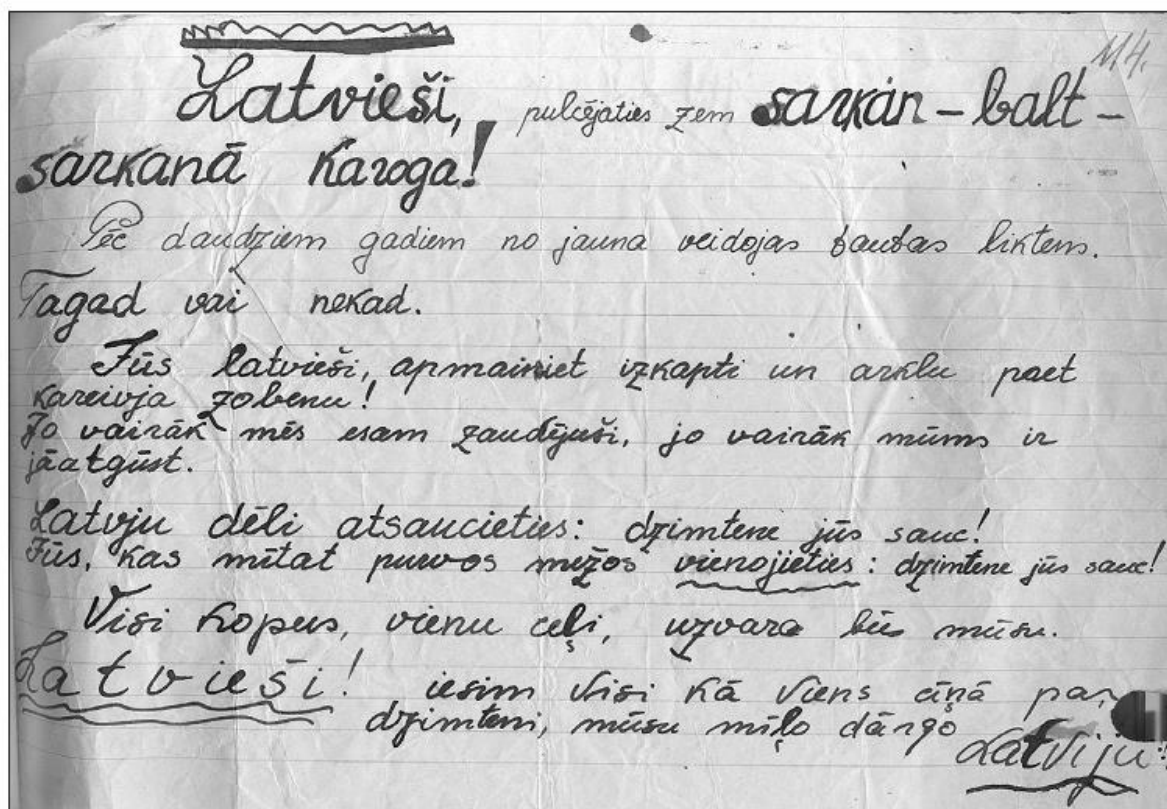 114.
Latvieši, pulcējaties zem sarkan-balt-
sarkanā karoga!
Pēc daudziem gadiem no jauna veidojas tautas liktens.
Tagad vai nekad.
Jūs latvieši, apmainiet izkapti un arklu pret
kareivja zobenu!
Jo vairāk mēs esam zaudējuši, jo vairāk mūms ir
jāatgūst.
Latvju dēli atsaucieties: dzimtene jūs sauc!
Jūs, kas mītat purvos mežos vienojieties: dzimtene jūs sauc!
Visi kopus, vienu ceļi, uzvara būs mūsu.
Latvieši! iesim visi kā viens cīņā par
dzimteni, mūsu mīļo dārgo
Latviju.